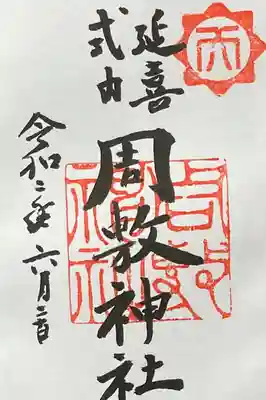 延喜
式内
周敷神社
令和二年 六月二日